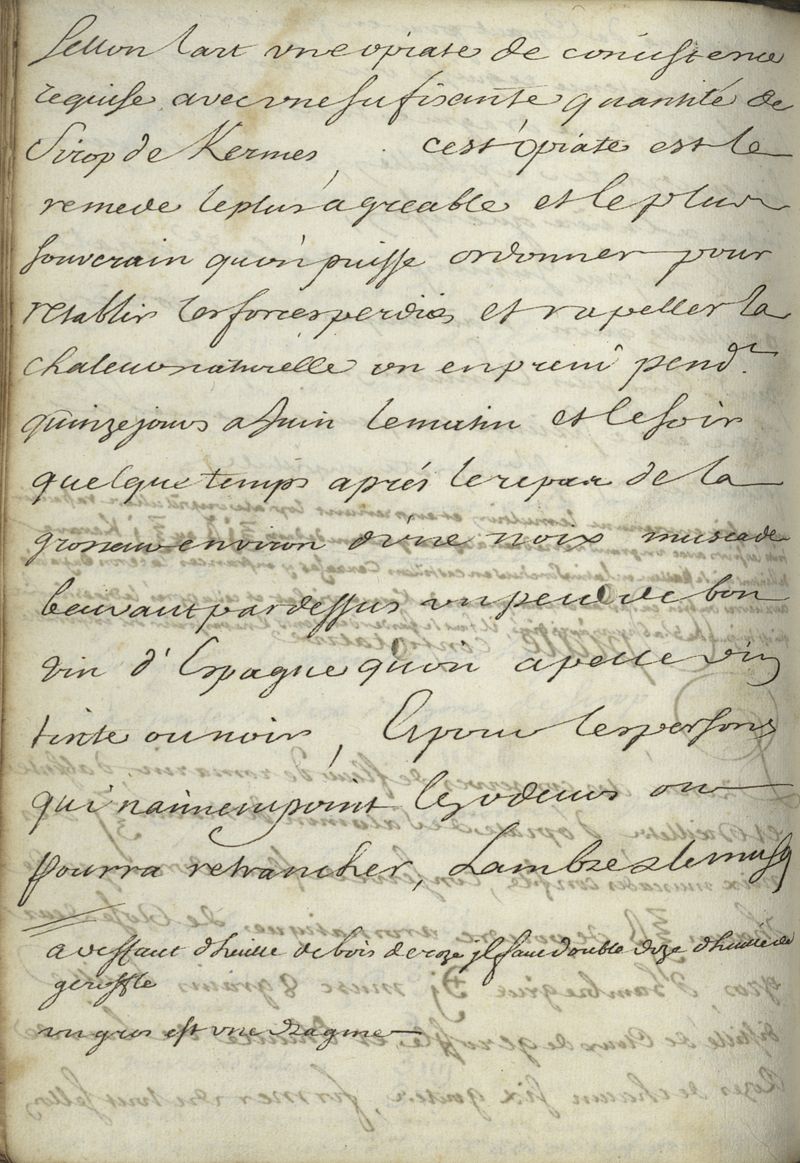 sellon lart vne opiate de consistence
requise avec vne sufisante quantité de
Sirop de Kermes, cest opiate est le
remede le plus agreable et le plus
souverain qu'on puisse ordonner pour
retablir les forces perdües et rapeller la
chaleur naturelle on en prent pend.t
quinze jours a juin le matin et le soir
quelque temps aprés le repas de la
grosseur environ d'une noix muscade
beuvant par dessus un peu de bon
vin d'Espagne qu'on apelle vin
tinte ou noir, Et pour les persones
qui n'aiment point les odeurs on
pourra retrancher, L'ambre & le musq
a deffaut d'huille de bois de roze jl faut double doze d'huille de
geroffle
un gros est vne dragme